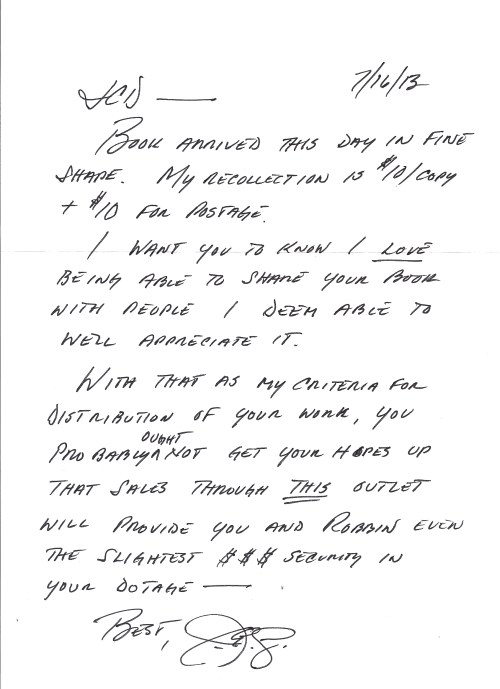 7/16/13
JCD —
BOOK ARRIVED THIS DAY IN FINE
SHAPE. MY RECOLLECTION IS $10/COPY
+ $10 FOR POSTAGE.
I WANT YOU TO KNOW I LOVE
BEING ABLE TO SHARE YOUR BOOK
WITH PEOPLE I DEEM ABLE TO
WELL APPRECIATE IT.
WITH THAT AS MY CRITERIA FOR
DISTRIBUTION OF YOUR WORK, YOU
PROBABLY OUGHT NOT GET YOUR HOPES UP
THAT SALES THROUGH THIS OUTLET
WILL PROVIDE YOU AND ROBBIN EVEN
THE SLIGHTEST $$$ SECURITY IN
YOUR DOTAGE —
BEST,